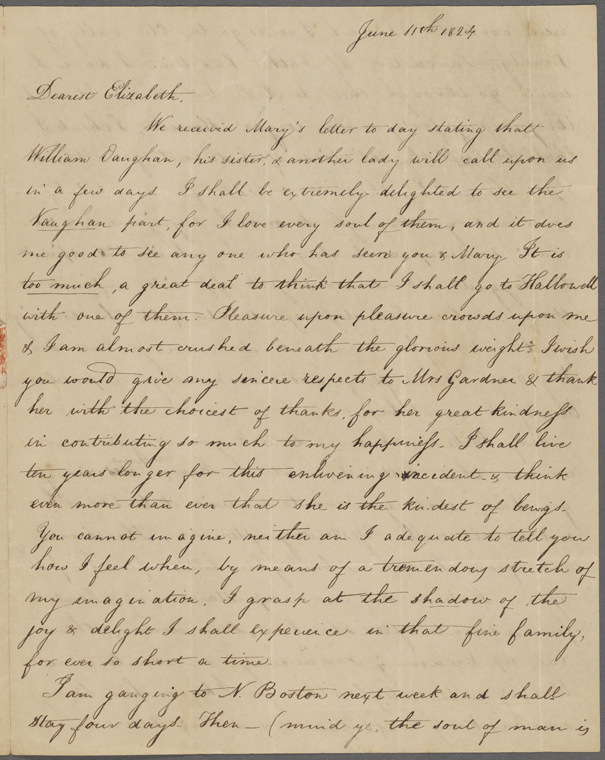 June 11th 1824
Dearest Elizabeth,
We received Mary's letter to day stating that
William Vaughan, his sister, & another lady will call upon us
in a few days I shall be extremely delighted to see the
Vaughan part, for I love every soul of them, and it does
me good to see any one who has seen you & Mary. It is
too much, a great deal to think that I shall go to Hallowell
with one of them. Pleasure upon pleasure crowds upon me
& I am almost crushed beneath the glorious weight. I wish
you would give my sincere respects to Mrs Gardner & thank
her with the choicest of thanks, for her great kindness
in contributing so much to my happiness. I shall live
ten years longer for this enlivening incident & think
even more than ever that she is the kindest of beings.
You cannot imagine, neither am I adequate to tell you
how I feel when, by means of a tremendous stretch of
my imagination, I grasp at the shadow of the
joy & delight I shall experience in that fine family,
for ever so short a time.
I am ganging to N. Boston next week and shall
stay four days. Then — (mind ye, the soul of man is